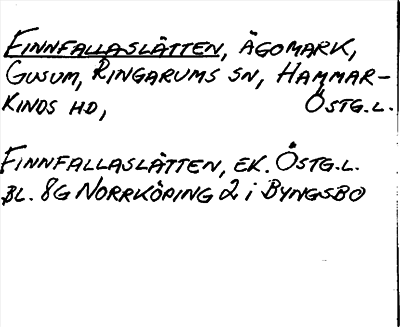 FINNFALLASLÄTTEN, ÄGOMARK,
GUSUM, RINGARUMS SN, HAMMAR-
KINDS HD, ÖSTG.L.
FINNFALLASLÄTTEN, EK. ÖSTG.L.
BL. 8G NORRKÖPING 2 i BYNGSBO